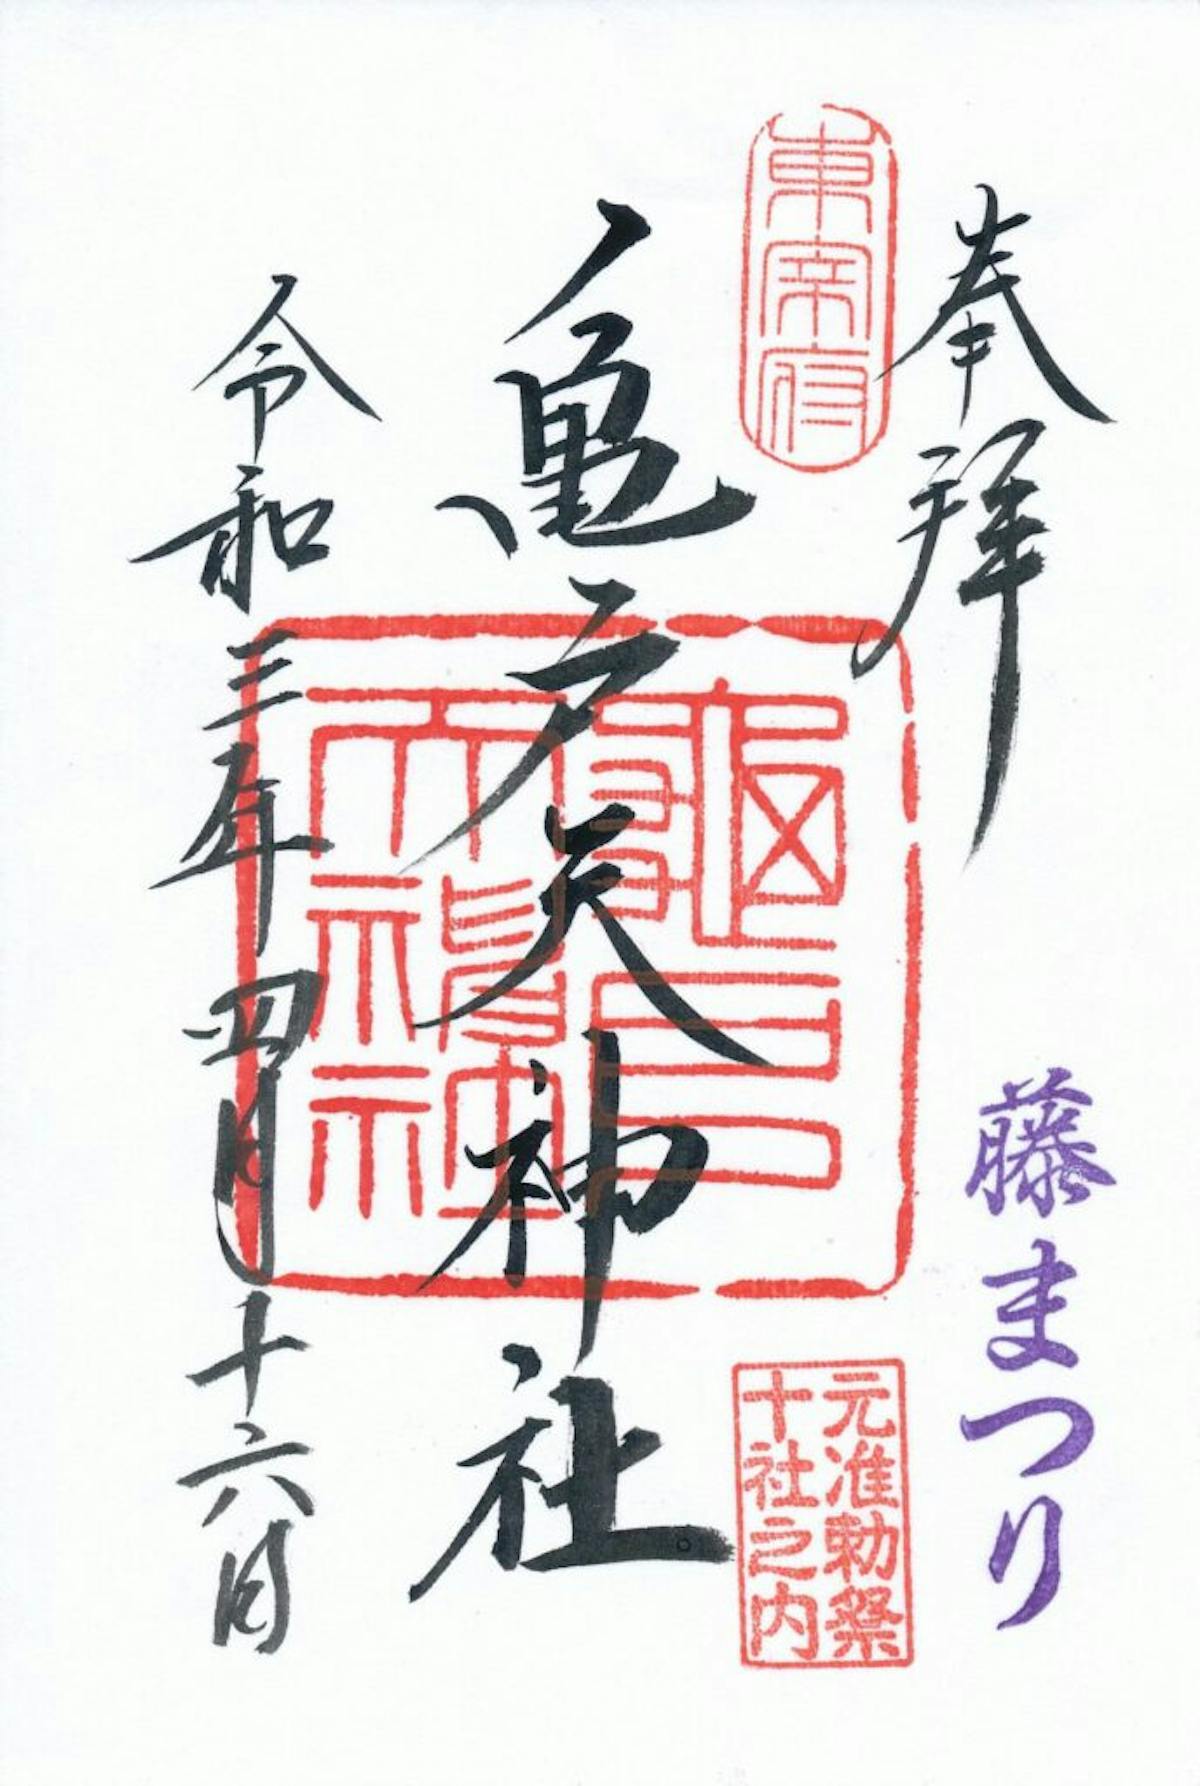 奉拝
藤まつり
東帝府
元准勅祭
十社之内
亀戸天神社
龜戸
天神社
令和三年四月十六日